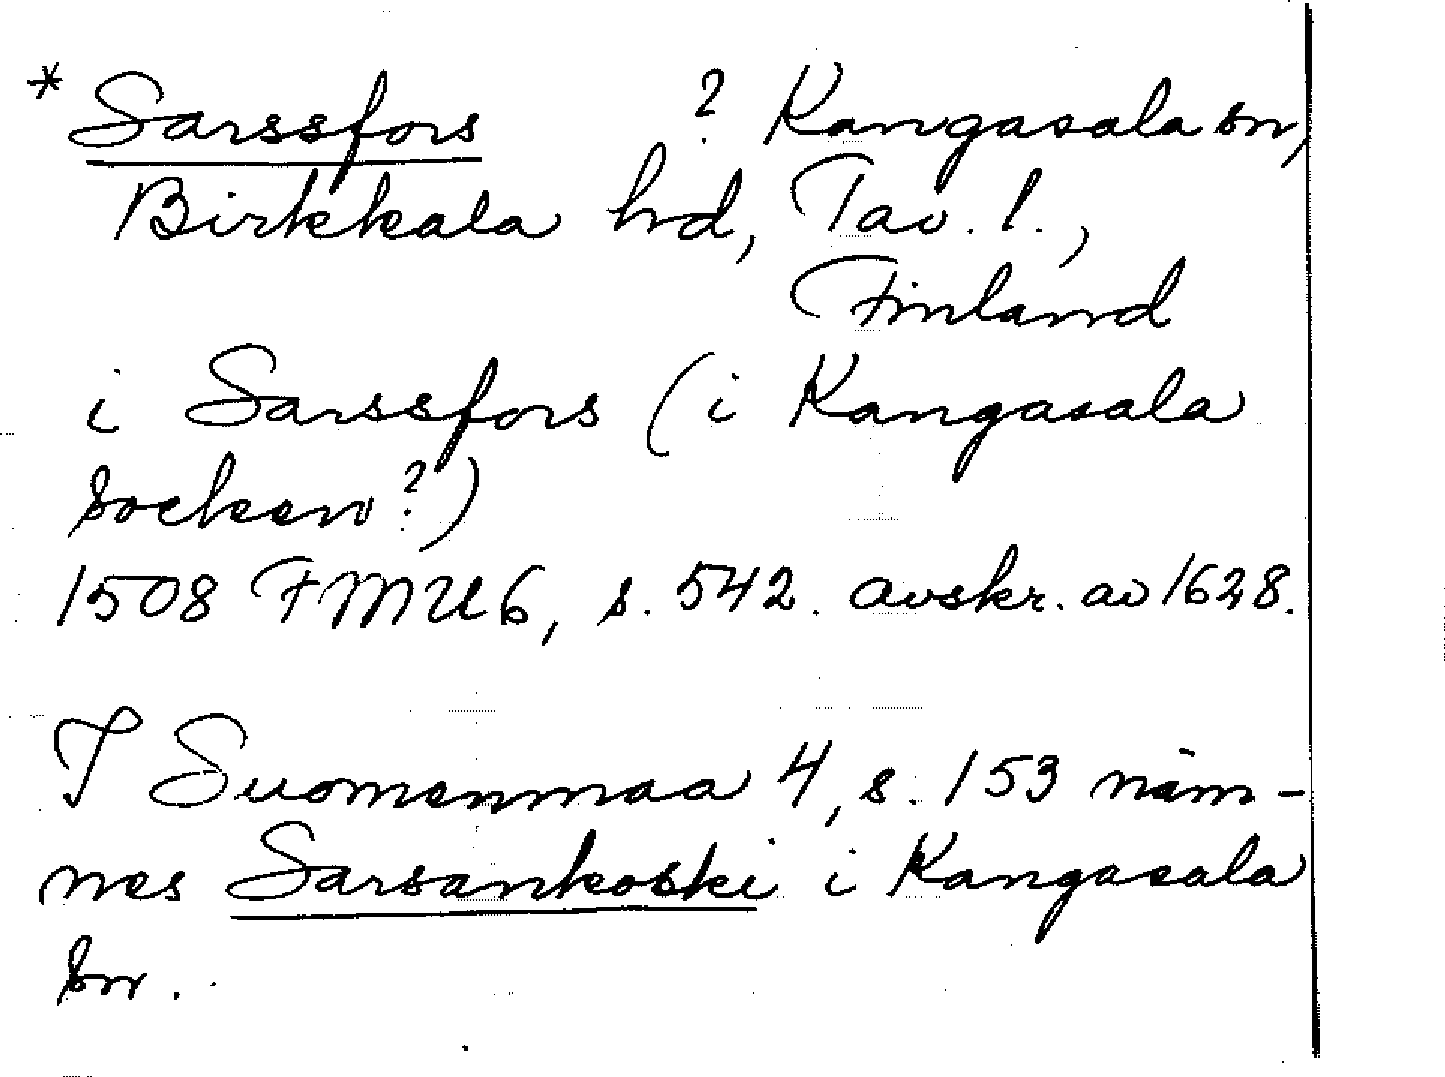 * Sarssfors ? Kangasala sn,
Birkkala hd, Tav. l.,
Finland
i Sarssfors (i Kangasala
socken?)
1508 FMU 6, s. 542. avskr. av 1628.
I Suomenmaa 4, s. 153 näm-
nes Sarsankoski i Kangasala
sn.